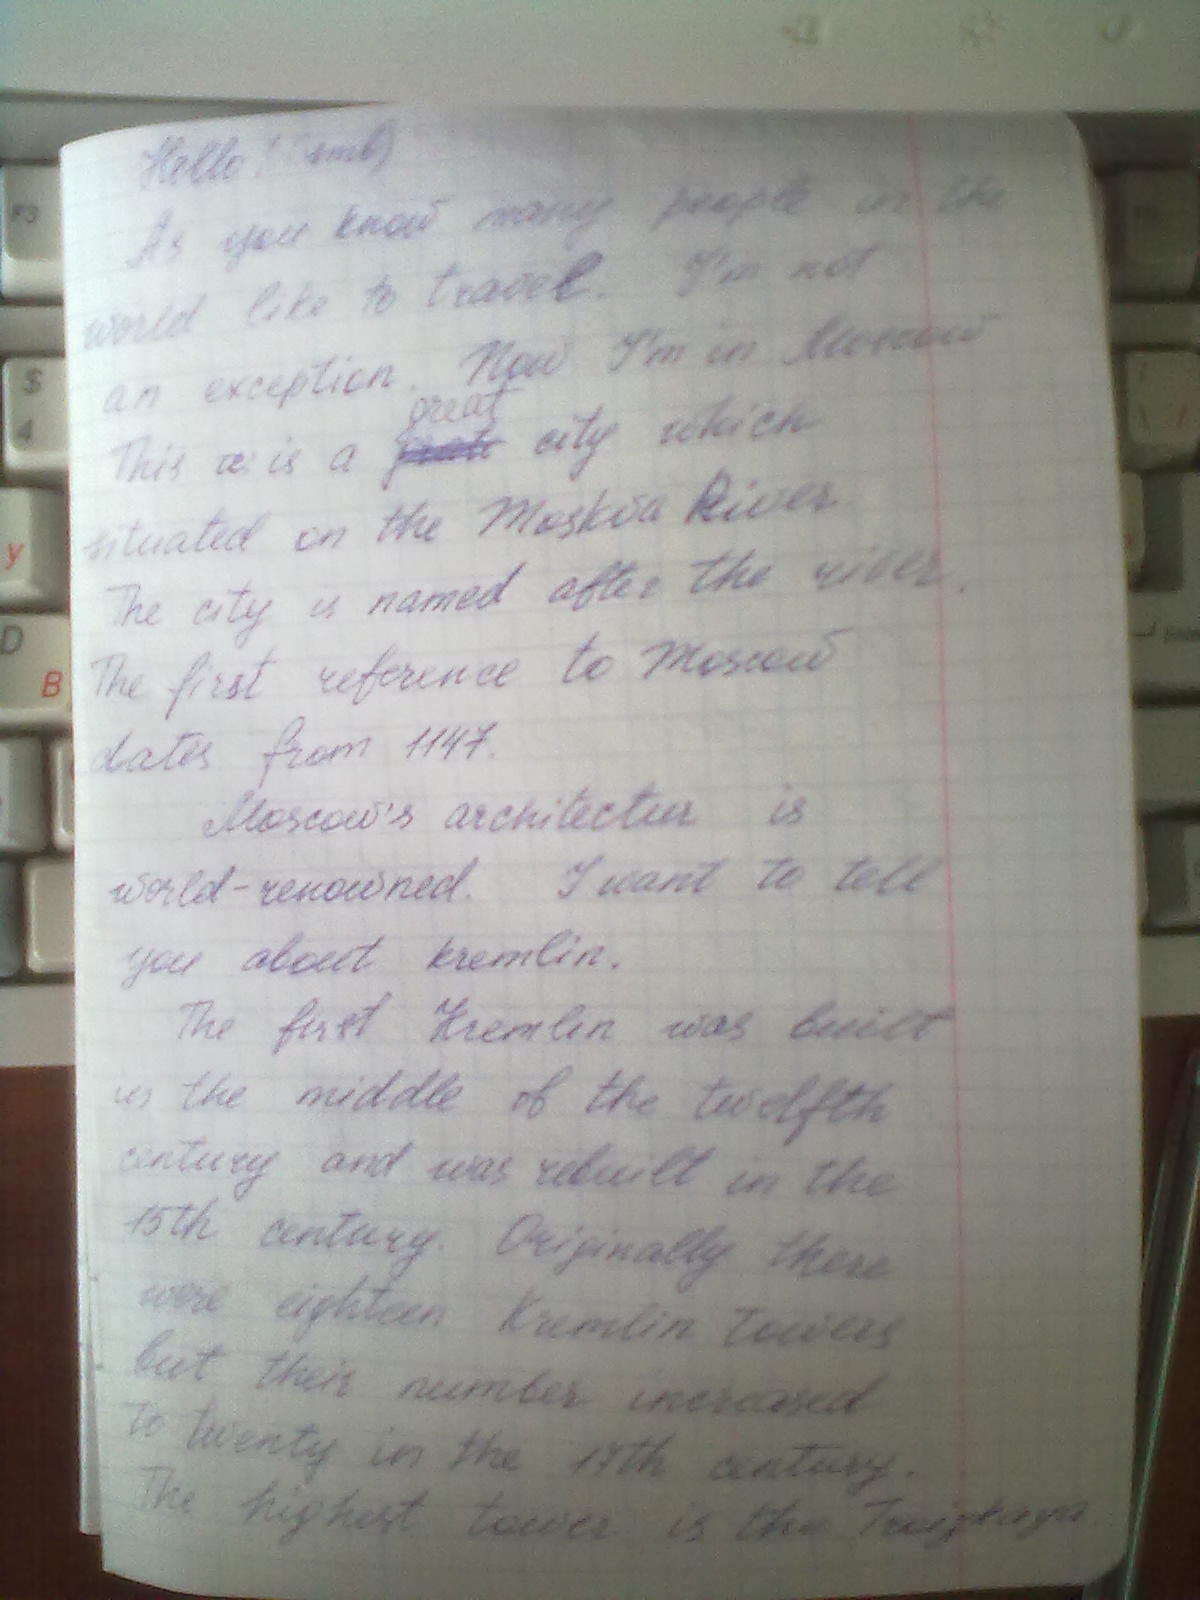 Hello! (smb)
As you know many people in the
world like to travel. I'm not
an exception. Now I'm in Moscow
great
This is a city which
situated on the Moskva River.
The city is named after the river.
The first reference to Moscow
dates from 1147.
Moscow's architectur is
world-renowned. I want to tell
you about kremlin.
The first Kremlin was built
in the middle of the twelfth
century and was rebuilt in the
15th century. Originally there
were eighteen Kremlin towers
but their number increased
to twenty in the 17th century.
The highest tower is the
F3
$
4
y
D
B
Enter